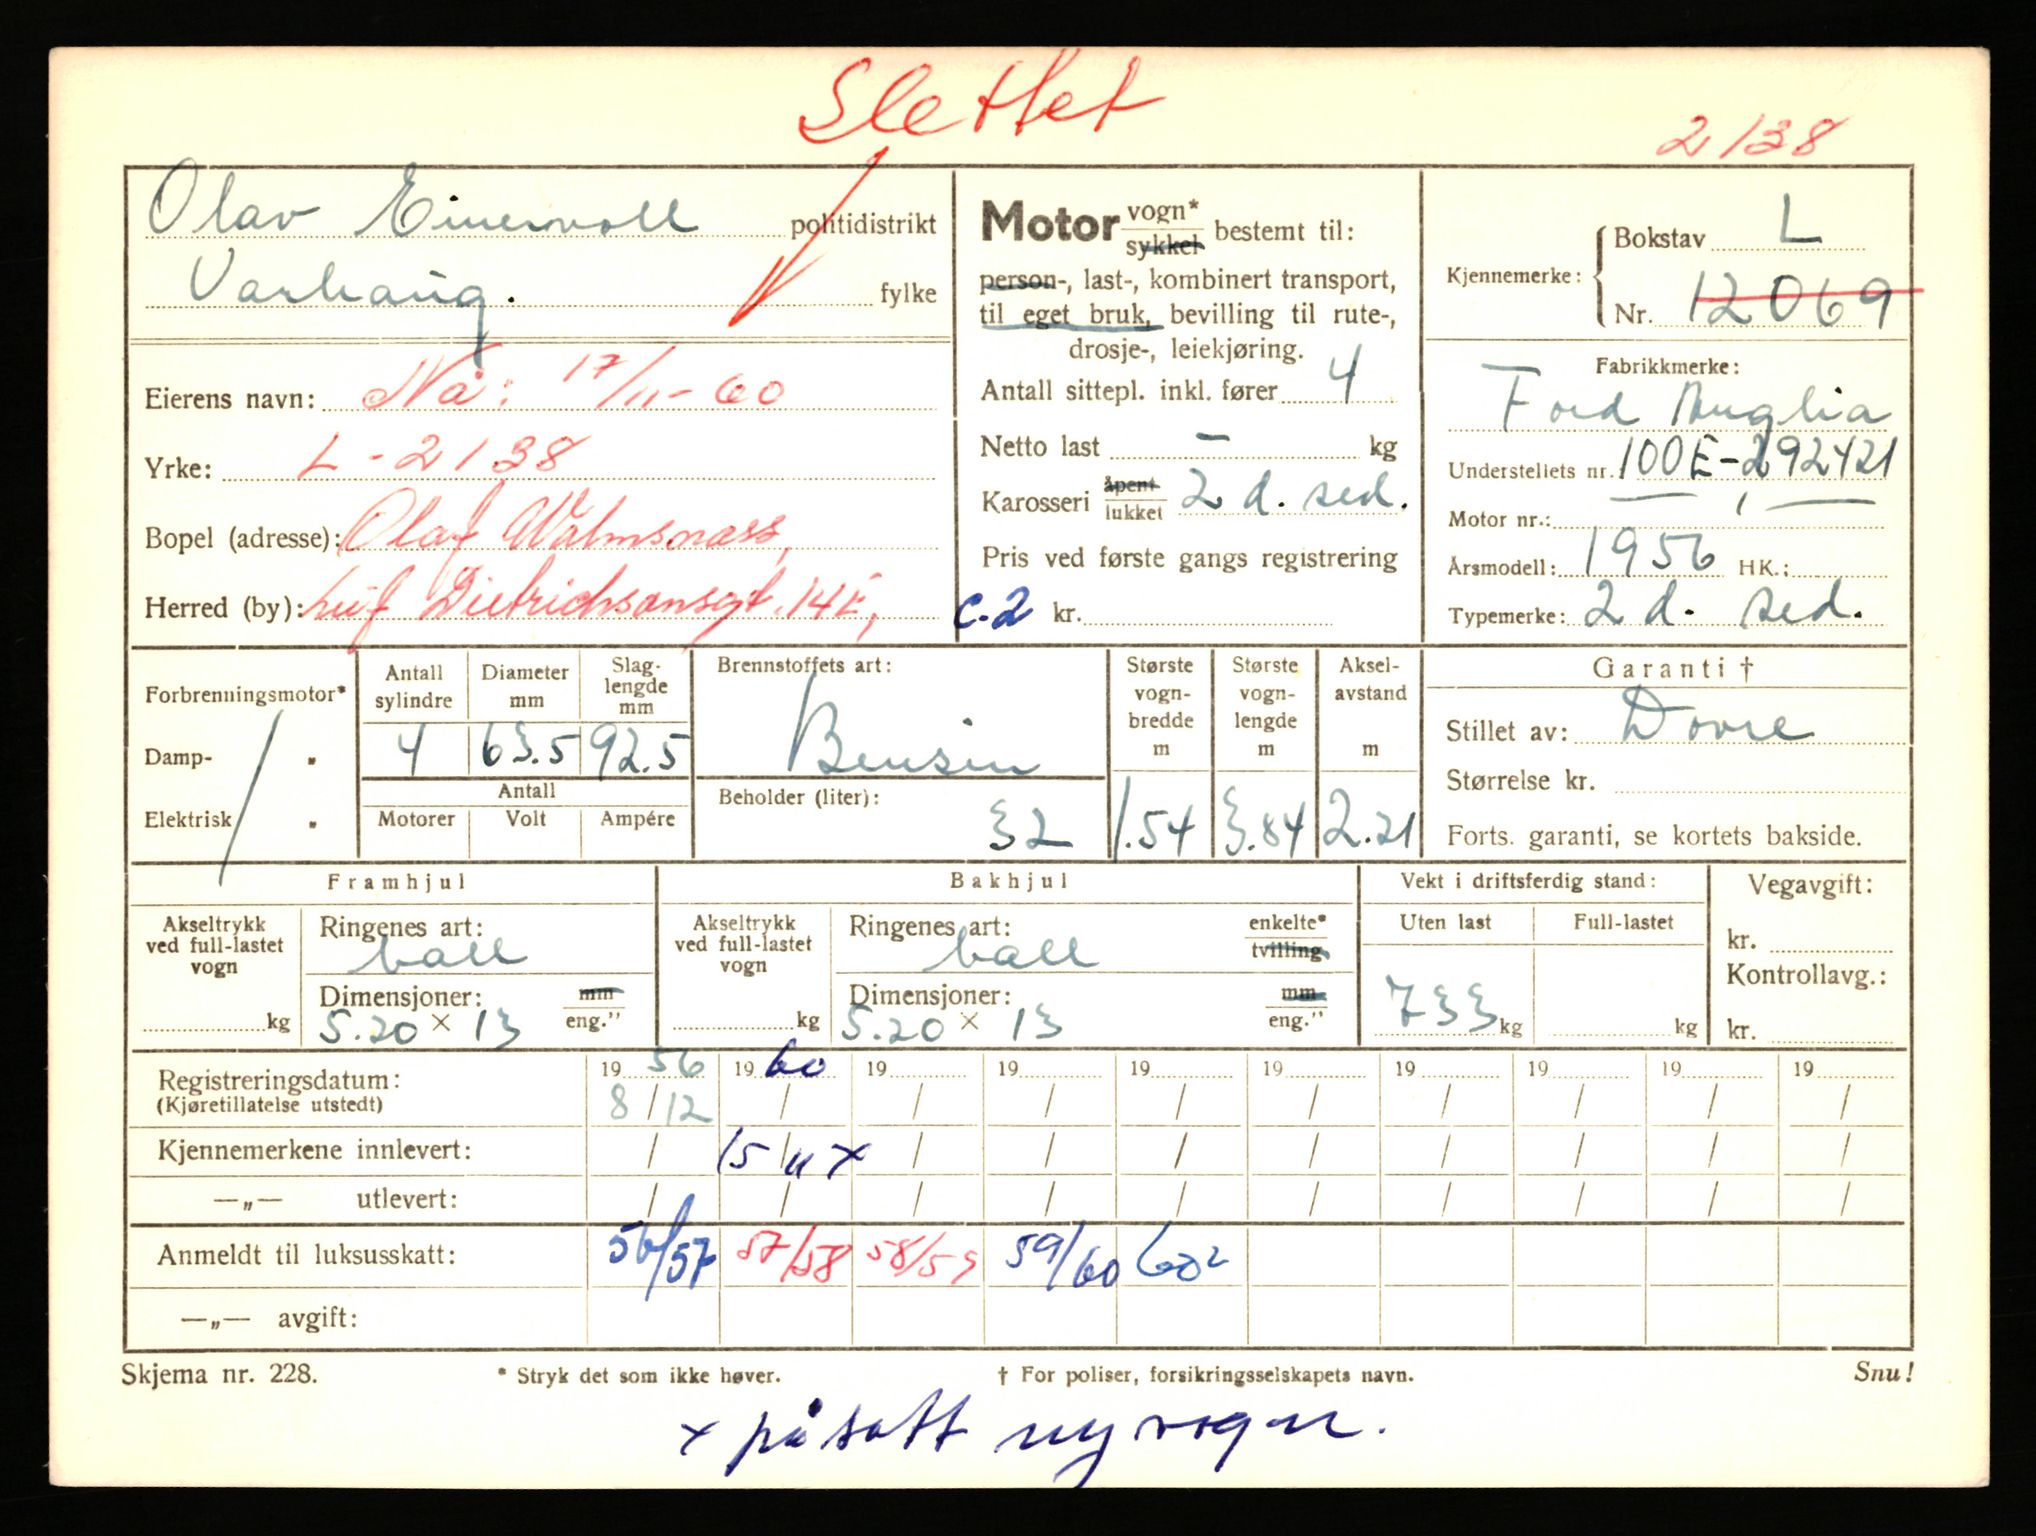 Slettet
2138
Olav Einervoll politidistrikt
Varhaug. fylke
Eierens navn: Nå: 17/11-60
Yrke: L-2138
Bopel (adresse): Olaf Walmsnæss,
Herred (by): Leif Dietrichsonsgt. 14E,
Motor vogn* sykkel bestemt til:
person-, last-, kombinert transport,
til eget bruk, bevilling til rute-,
drosje-, leiekjøring.
Antall sittepl. inkl. fører 4
Netto last — kg
Karosseri åpent lukket 2 d. sed.
Pris ved første gangs registrering
C.2 kr.
Kjennemerke: Bokstav L
Nr. 12069
Fabrikkmerke:
Ford Anglia
Understellets nr. 100E-292421
Motor nr.:
Årsmodell: 1956 HK.:
Typemerke: 2 d. sed.
Forbrenningsmotor*
Damp- "
Elektrisk "
Antall sylindre Diameter mm Slaglengde mm
4 63.5 92.5
Antall
Motorer Volt Ampére
Brennstoffets art:
Bensin
Beholder (liter):
32
Største vognbredde m 1.54
Største vognlengde m 3.84
Akselavstand m 2.21
Garanti †
Stillet av: Dovre
Størrelse kr.
Forts. garanti, se kortets bakside.
Framhjul
Akseltrykk ved full-lastet vogn kg
Ringenes art:
ball
Dimensjoner: mm eng."
5.20 × 13
Bakhjul
Akseltrykk ved full-lastet vogn kg
Ringenes art: enkelte* tvilling
ball
Dimensjoner: mm eng."
5.20 × 13
Vekt i driftsferdig stand:
Uten last Full-lastet
733 kg kg
Vegavgift:
kr.
Kontrollavg.:
kr.
Registreringsdatum: 19 56 19 60 19 19 19 19 19 19 19 19
(Kjøretillatelse utstedt) 8/12 / / / / / / / / /
Kjennemerkene innlevert: / 15/11 x / / / / / / / /
—„— utlevert: / / / / / / / / / /
Anmeldt til luksusskatt: 56/57 57/58 58/59 59/60 60²
—„— avgift:
Skjema nr. 228. * Stryk det som ikke høver. † For poliser, forsikringsselskapets navn. Snu!
x påsatt ny vogn.